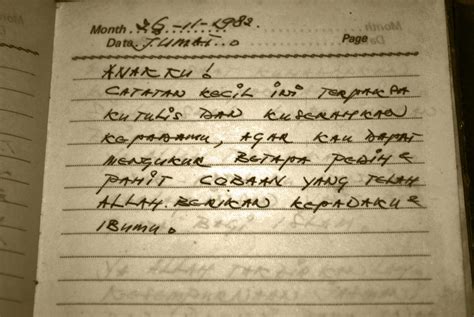 Month 26-11-1982.
Date JUMAT. Page
ANAKKU!
CATATAN KECIL INI TERPAKSA
KUTULIS DAN KUSERAHKAN
KEPADAMU, AGAR KAU DAPAT
MENGUKUR BETAPA PEDIH &
PAHIT COBAAN YANG TELAH
ALLAH BERIKAN KEPADAKU &
IBUMU.